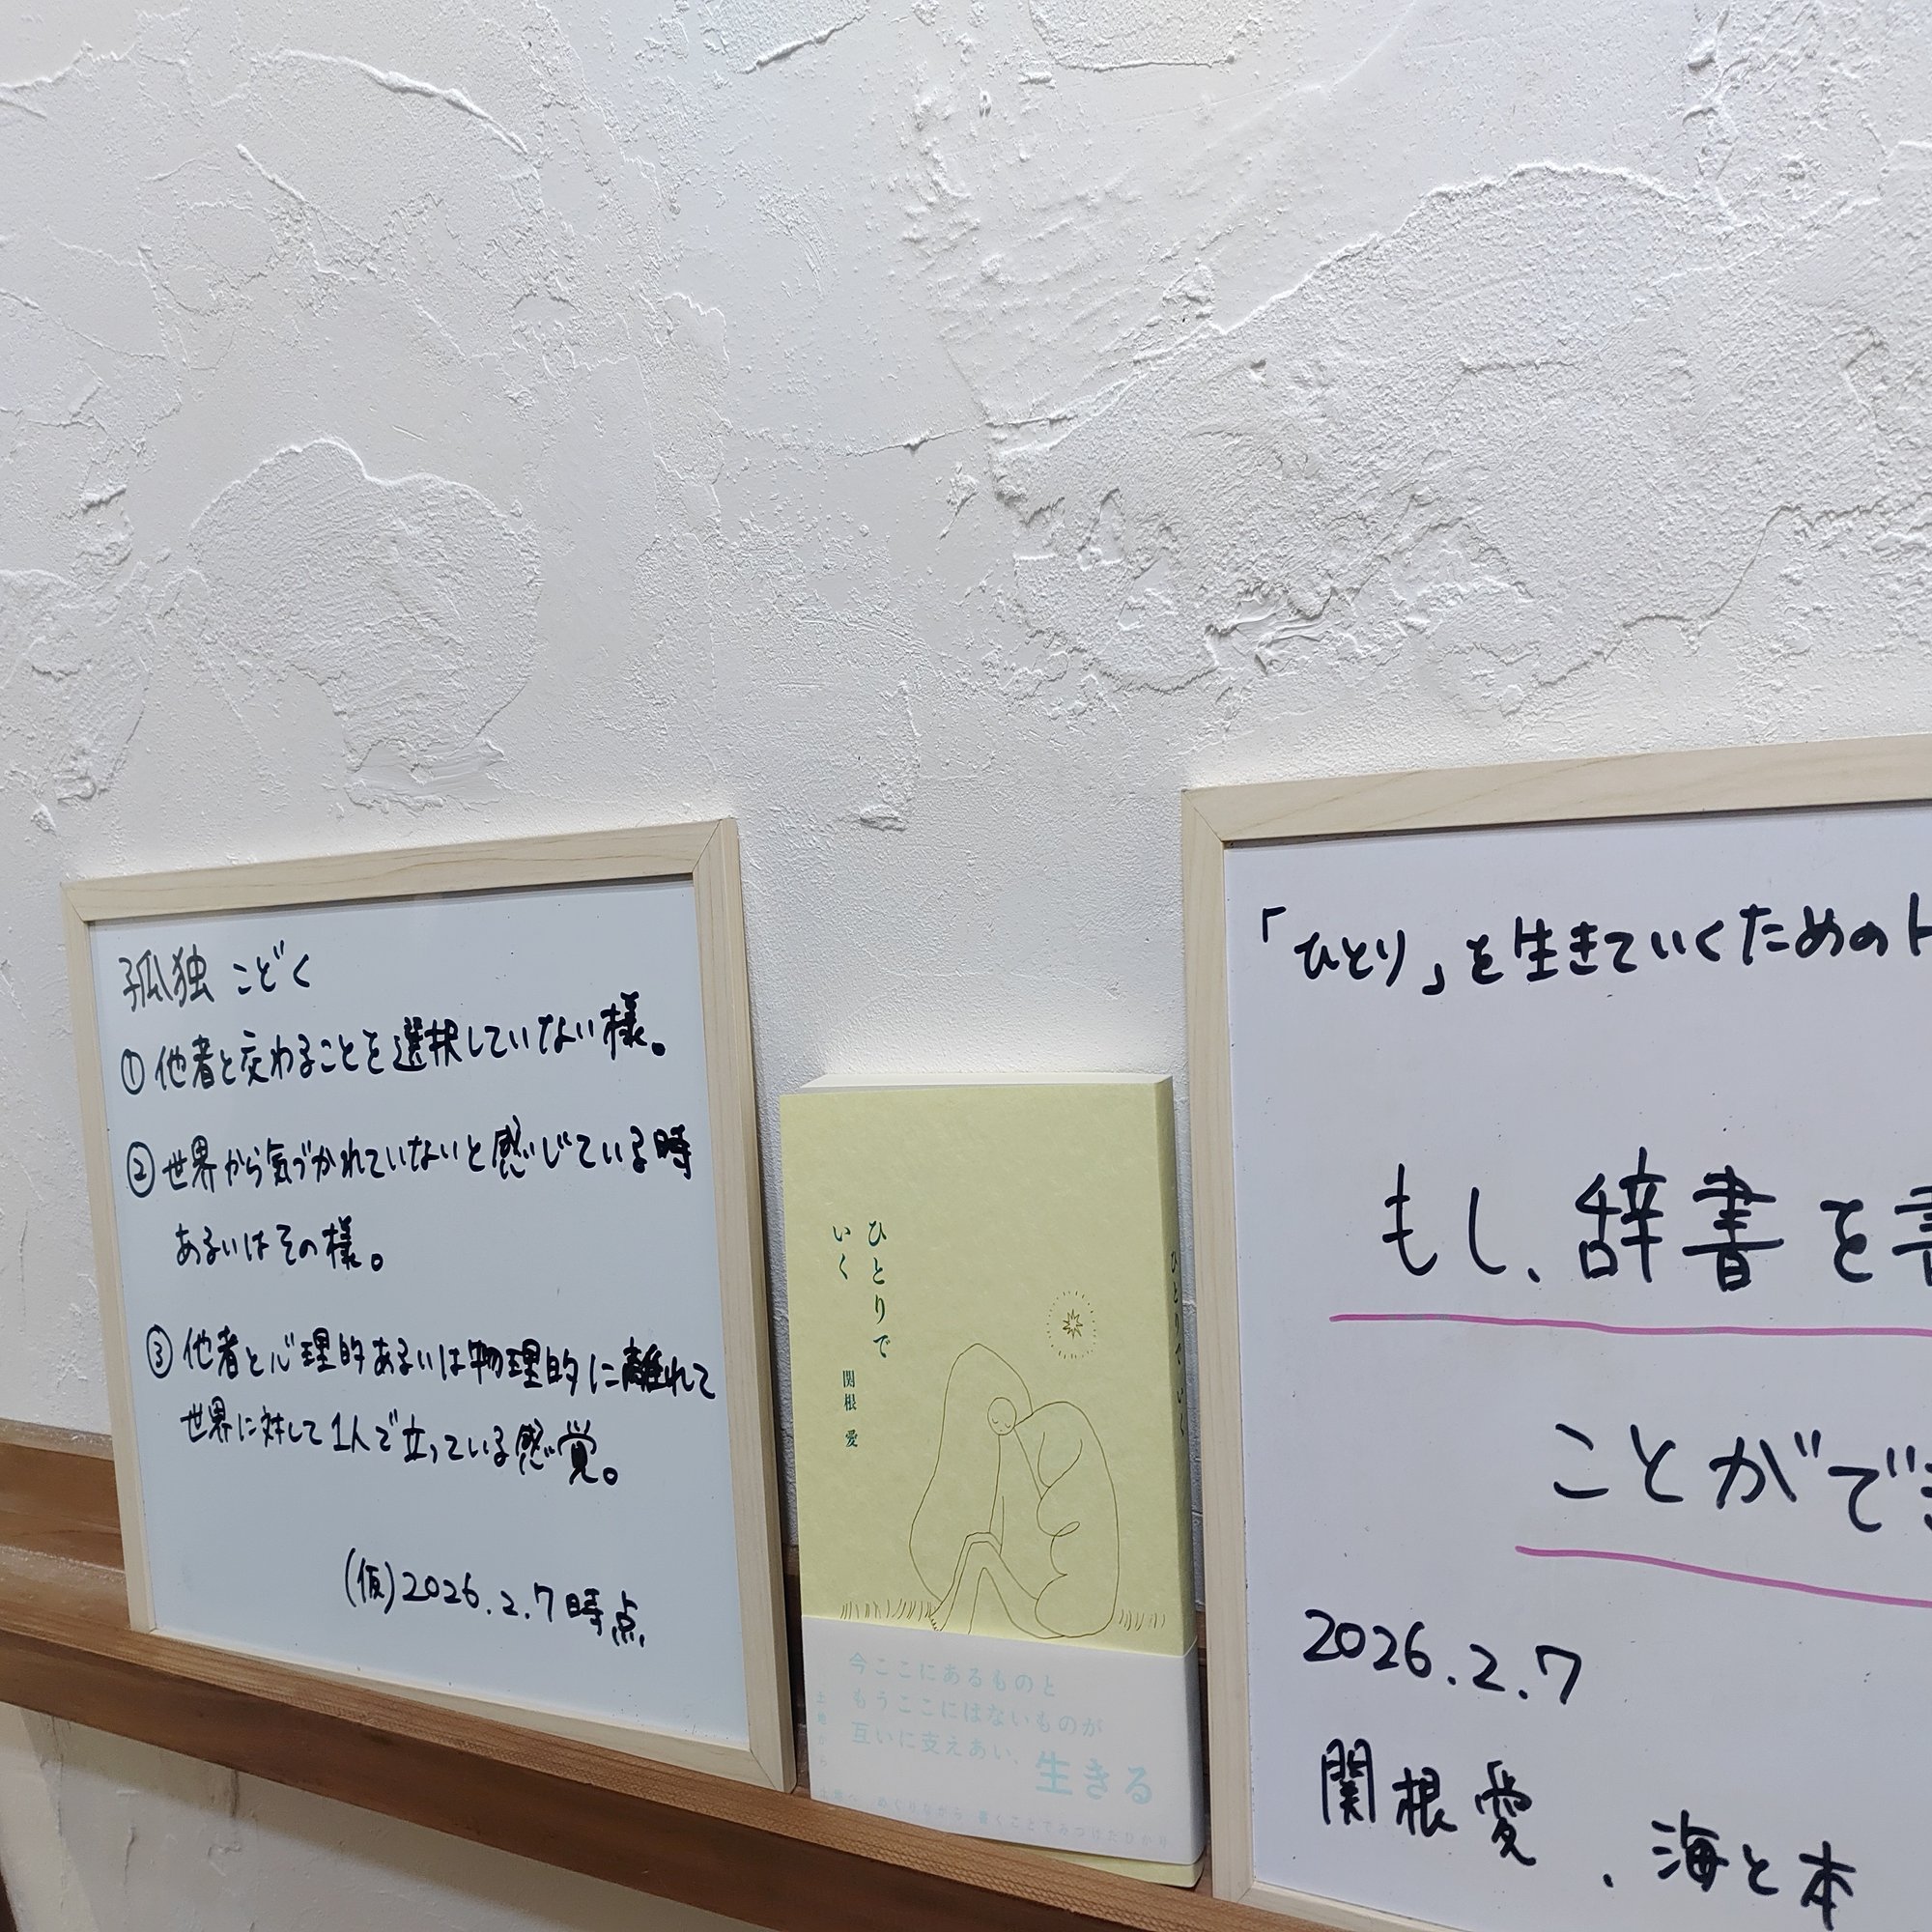 孤独 こどく
① 他者と交わることを選択していない様。
② 世界から気づかれていないと感じている時
あるいはその様。
③ 他者と心理的あるいは物理的に離れて
世界に対して1人で立っている感覚。
(仮)2026.2.7時点
ひとりで
いく
関根 愛
今ここにあるものと
もうここにはないものが
互いに支えあい、生きる
めぐりながら 書くことでみつけたひかり
ひとりでいく
「ひとり」を生きていくための
もし、辞書を
ことがで
2026.2.7
関根愛、海と本